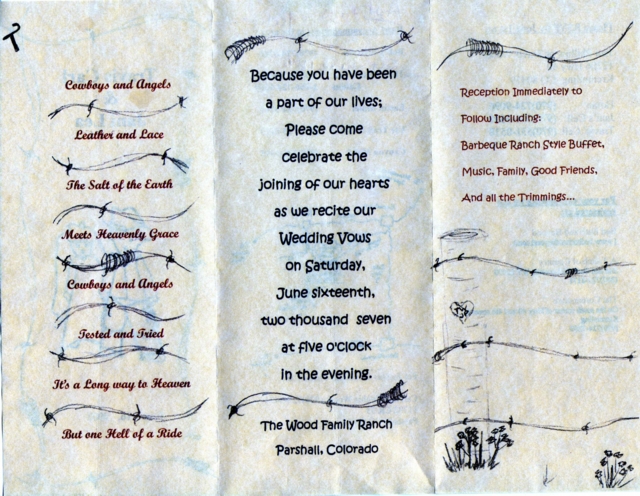 Cowboys and Angels
Leather and Lace
The Salt of the Earth
Meets Heavenly Grace
Cowboys and Angels
Tested and Tried
It's a Long way to Heaven
But one Hell of a Ride
Because you have been
a part of our lives;
Please come
celebrate the
joining of our hearts
as we recite our
Wedding Vows
on Saturday,
June sixteenth,
two thousand seven
at five o'clock
in the evening.
The Wood Family Ranch
Parshall, Colorado
Reception Immediately to
Follow Including:
Barbeque Ranch Style Buffet,
Music, Family, Good Friends,
And all the Trimmings...